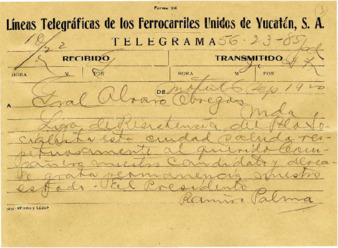 Forma 24
Líneas Telegráficas de los Ferrocarriles Unidos de Yucatán, S. A.
TELEGRAMA 56-23-85
10/22
RECIBIDO TRANSMITIDO
HORA M. HORA M.
DE Motul 6 Sep. 1920
A Gral Alvaro Obregon
Mda
Liga de Resistencia del
esta ciudad saluda res
petuosamente al querido
nuestro candidato y desea
le grata permanencia nuestro
estado. - El Presidente
Ramiro Palma